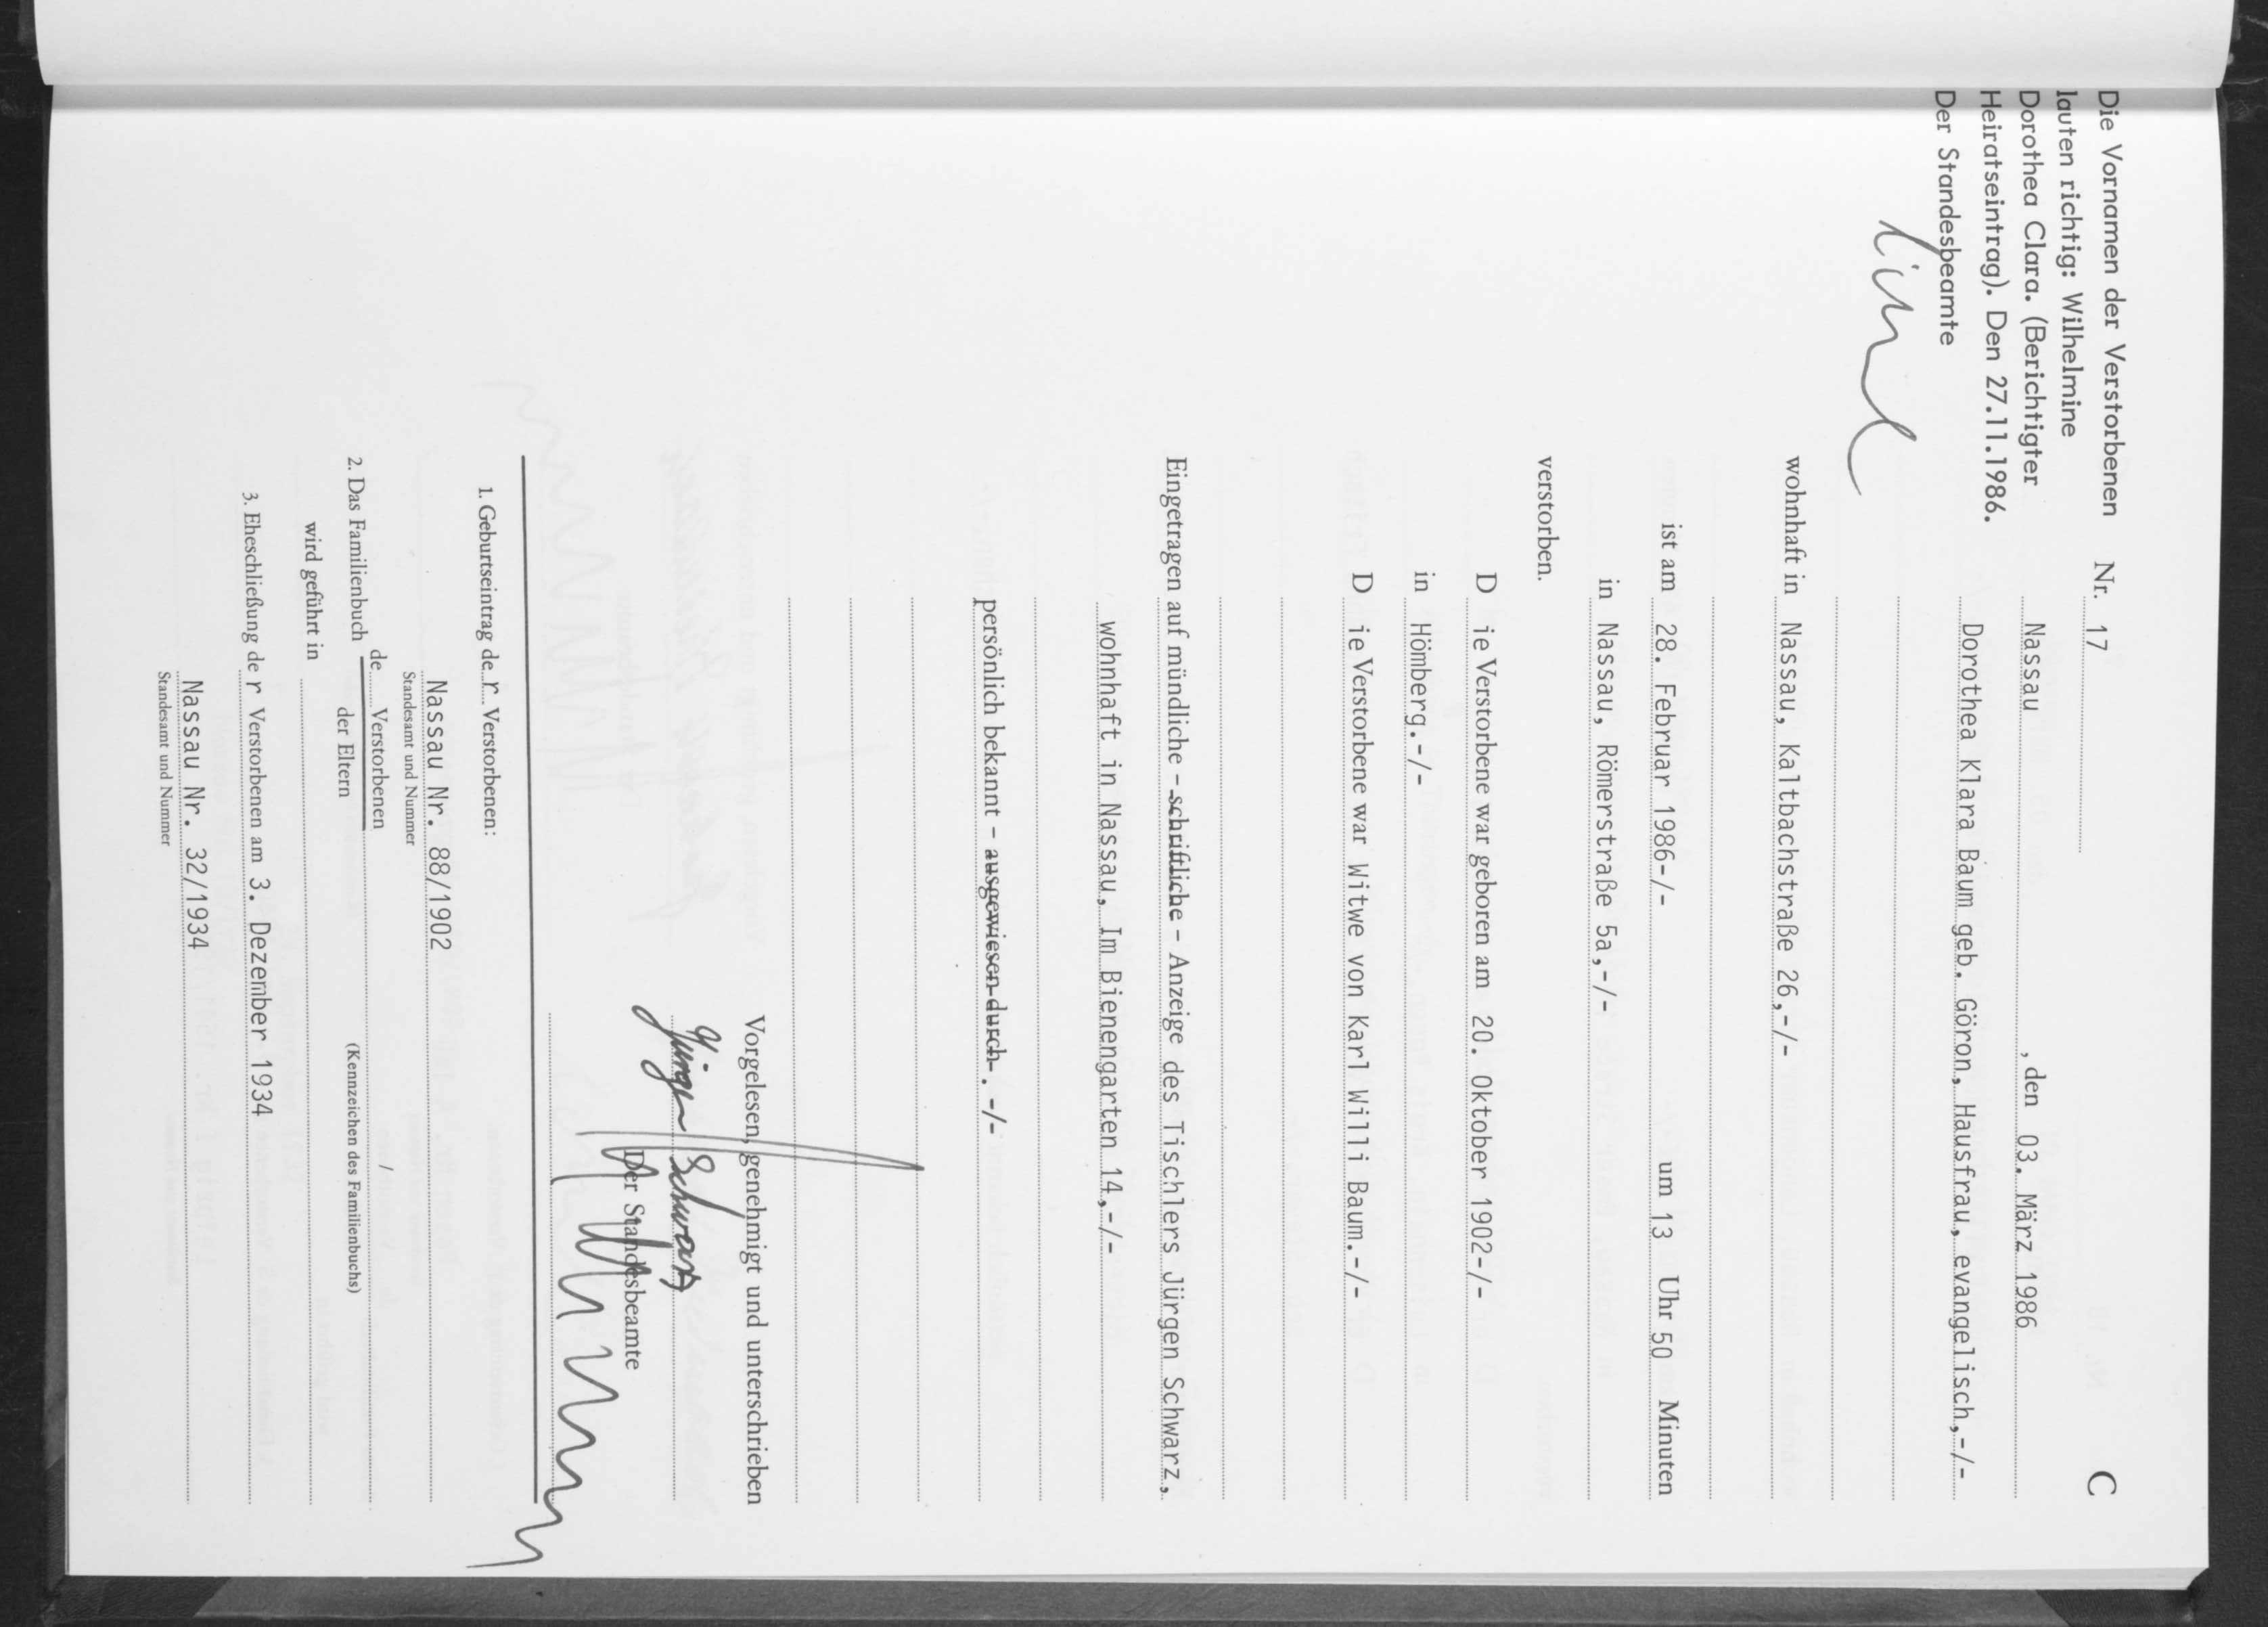 Die Vornamen der Verstorbenen
lauten richtig: Wilhelmine
Dorothea Clara. (Berichtigter
Heiratseintrag). Den 27.11.1986.
Der Standesbeamte
C
Nr. 17
Nassau , den 03. März 1986
Dorothea Klara Baum geb. Göron, Hausfrau, evangelisch,-/-
wohnhaft in Nassau, Kaltbachstraße 26,-/-
ist am 28. Februar 1986-/- um 13 Uhr 50 Minuten
in Nassau, Römerstraße 5a,-/-
verstorben.
D ie Verstorbene war geboren am 20. Oktober 1902-/-
in Hömberg.-/-
D ie Verstorbene war Witwe von Karl Willi Baum.-/-
Eingetragen auf mündliche – schriftliche – Anzeige des Tischlers Jürgen Schwarz,
wohnhaft in Nassau, Im Bienengarten 14,-/-
persönlich bekannt – ausgewiesen durch-.-/-
Vorgelesen, genehmigt und unterschrieben
Jürgen Schwarz
Der Standesbeamte
1. Geburtseintrag de r Verstorbenen:
Nassau Nr. 88/1902
Standesamt und Nummer
2. Das Familienbuch de Verstorbenen /
der Eltern (Kennzeichen des Familienbuchs)
wird geführt in
3. Eheschließung de r Verstorbenen am 3. Dezember 1934
Nassau Nr. 32/1934
Standesamt und Nummer